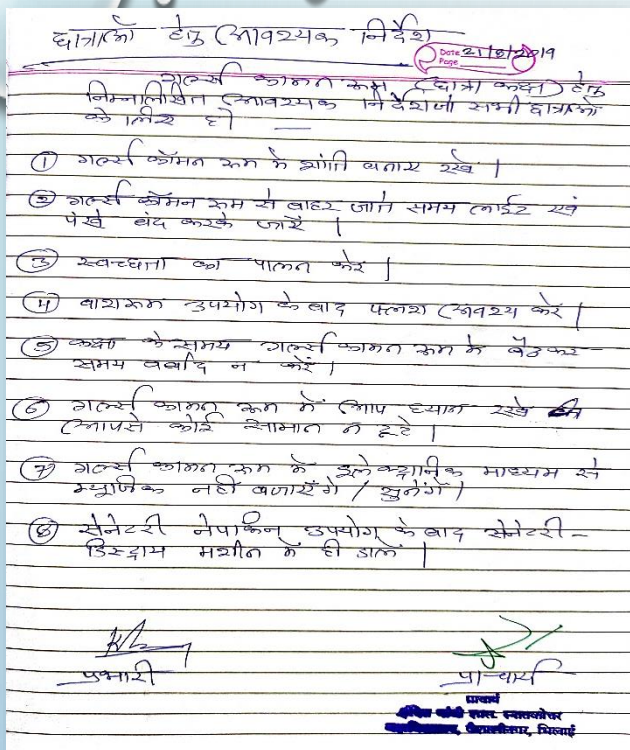 छात्राओं हेतु आवश्यक निर्देश
Date 21/8/2019
Page
गर्ल्स कामन रूम (छात्रा कक्ष) हेतु
निम्नलिखित आवश्यक निर्देश जो सभी छात्राओं
के लिए है।
① गर्ल्स कॉमन रूम में शांति बनाए रखें।
② गर्ल्स कॉमन रूम से बाहर जाते समय लाईट एवं
पंखे बंद करके जायें।
③ स्वच्छता का पालन करें।
④ वाशरूम उपयोग के बाद फ्लश अवश्य करें।
⑤ कक्षा के समय गर्ल्स कामन रूम में बैठकर
समय बर्बाद न करें।
⑥ गर्ल्स कामन रूम में आप ध्यान रखे
आपसे कोई सामान न टूटे।
⑦ गर्ल्स कामन रूम में इलेक्ट्रानिक माध्यम से
म्यूजिक नहीं बजाएंगे / सुनेंगें।
⑧ सेनेटरी नेपकिन उपयोग के बाद सेनेटरी -
डिस्ट्राय मशीन में ही डालें।
प्रभारी
प्राचार्य
प्राचार्य
स्नातकोत्तर
वैशालीनगर, भिलाई